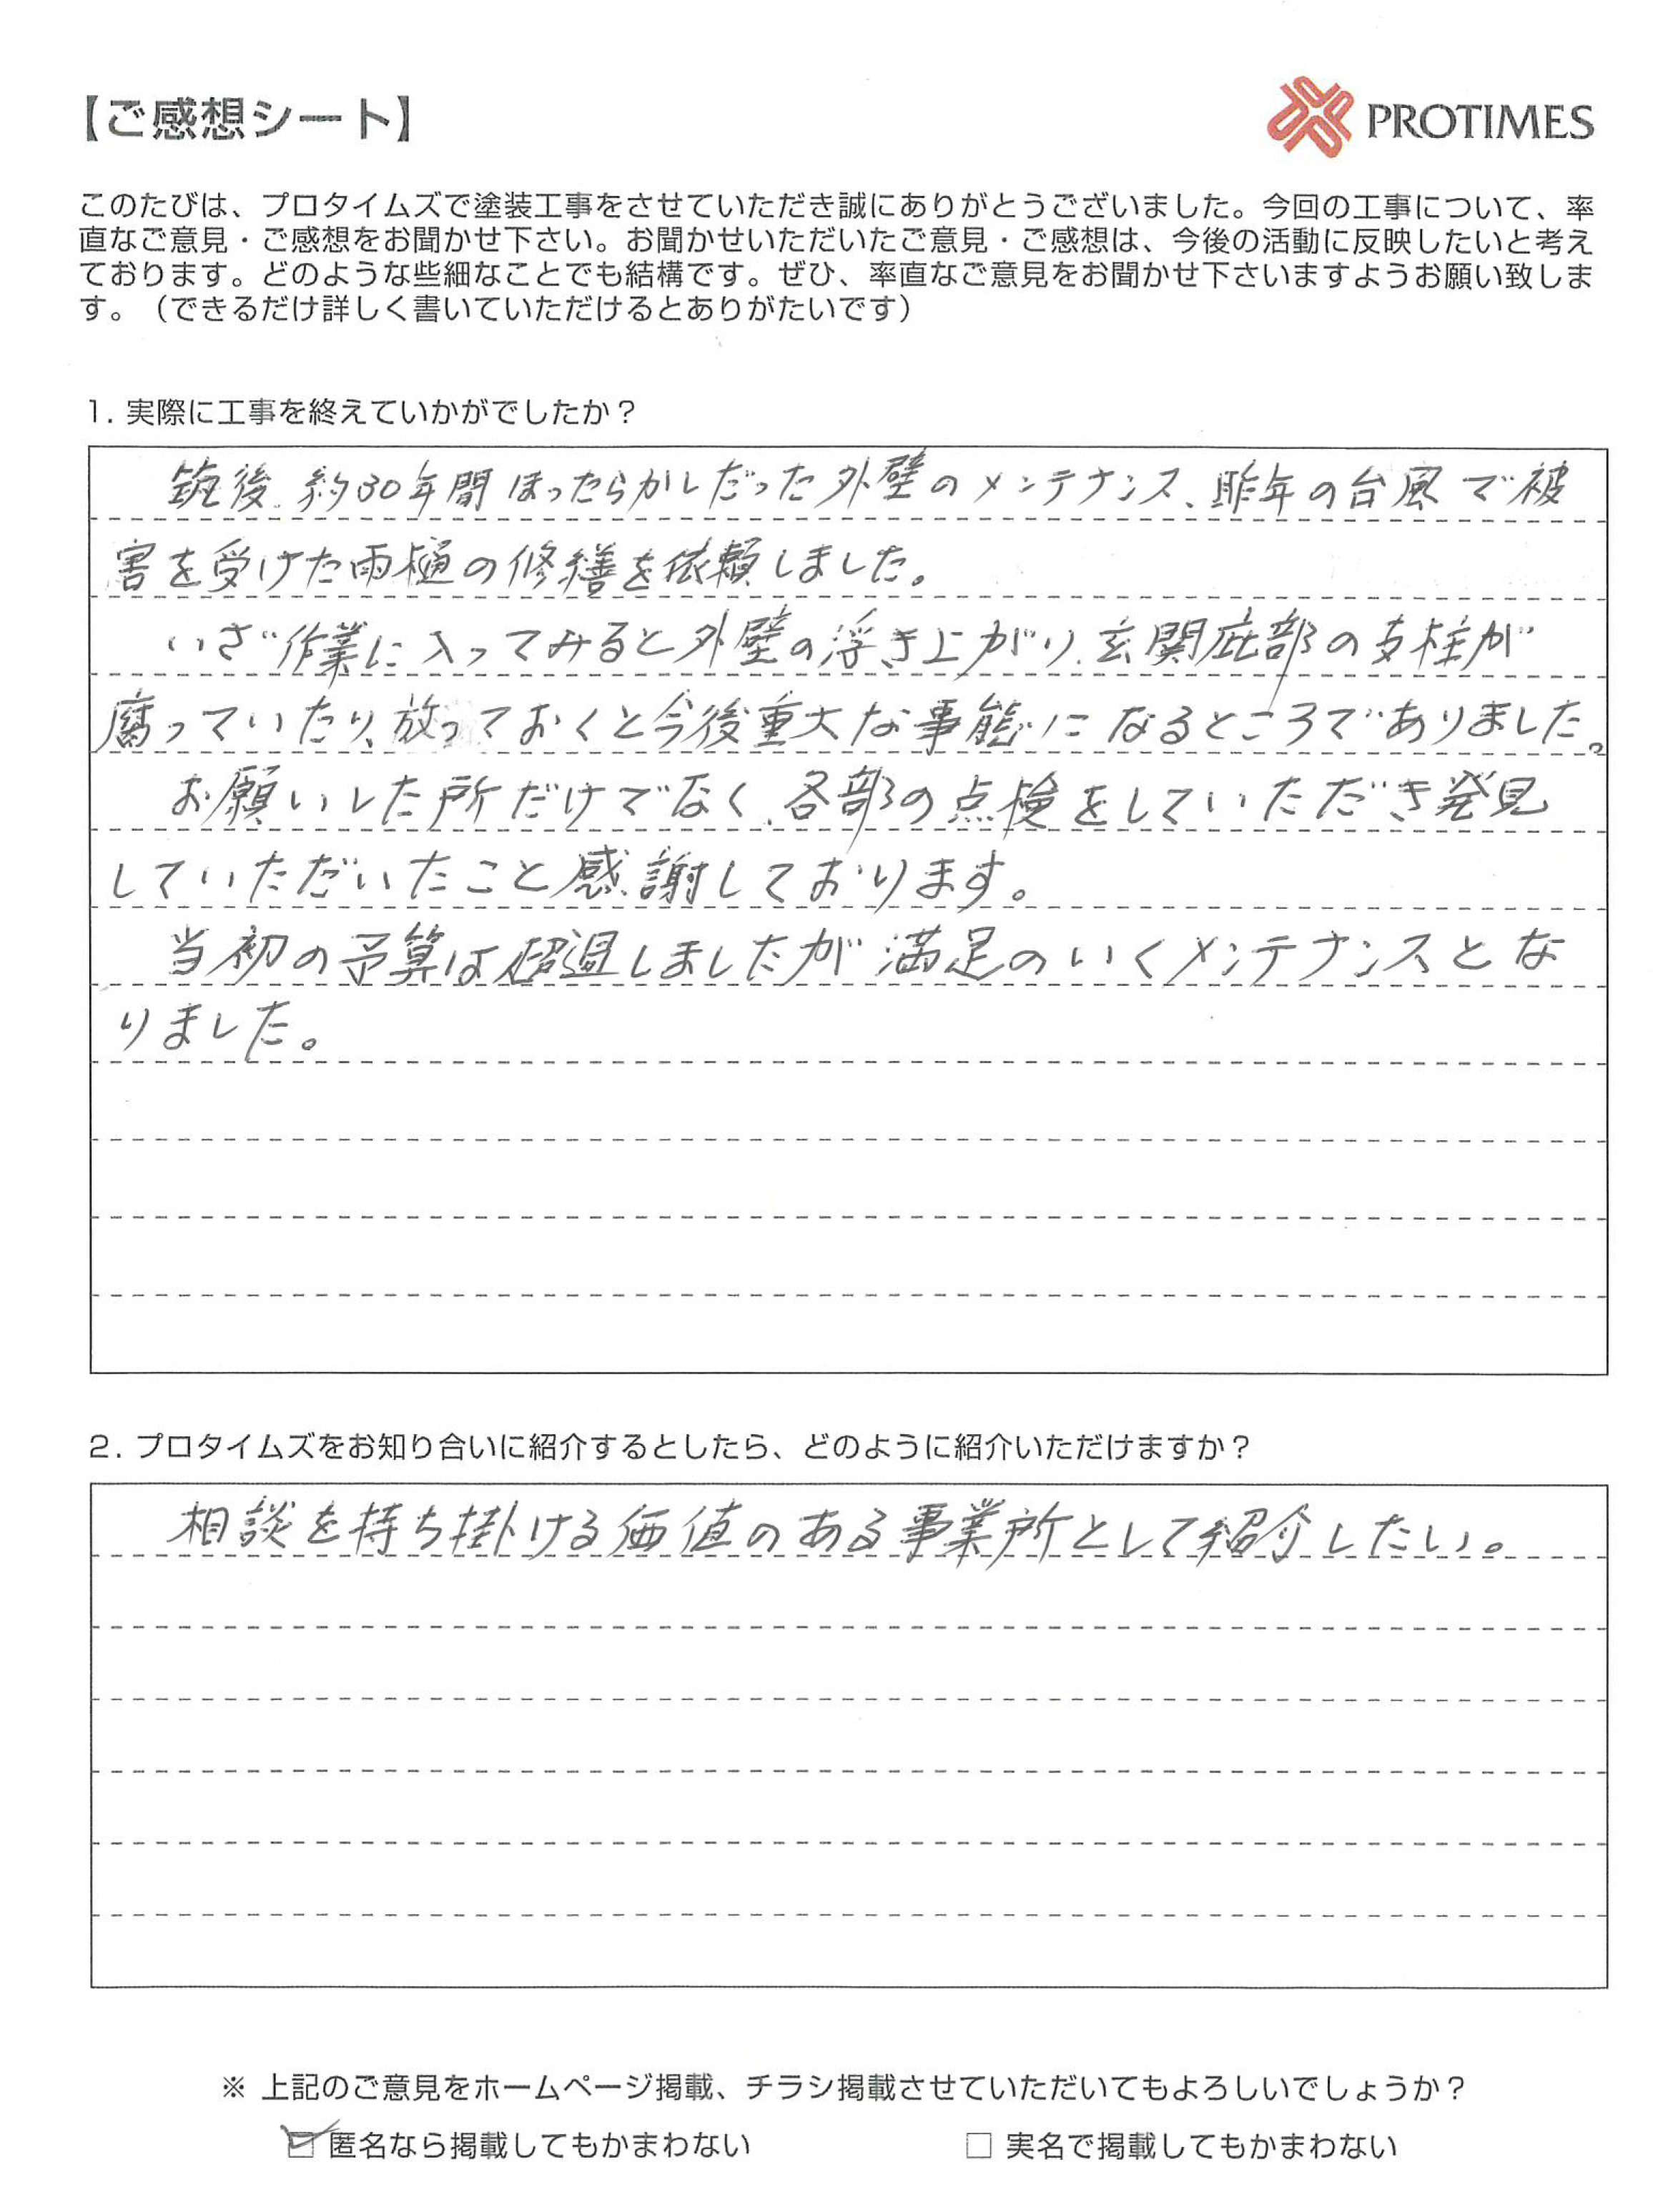 【ご感想シート】
PROTIMES
このたびは、プロタイムズで塗装工事をさせていただき誠にありがとうございました。今回の工事について、率
直なご意見・ご感想をお聞かせ下さい。お聞かせいただいたご意見・ご感想は、今後の活動に反映したいと考え
ております。どのような些細なことでも結構です。ぜひ、率直なご意見をお聞かせ下さいますようお願い致しま
す。（できるだけ詳しく書いていただけるとありがたいです）
1. 実際に工事を終えていかがでしたか？
築後、約30年間ほったらかしだった外壁のメンテナンス、昨年の台風で被
害を受けた雨樋の修繕を依頼しました。
いざ作業に入ってみると外壁の浮き上がり、玄関庇部の支柱が
腐っていたり、放っておくと今後重大な事態になるところでありました。
お願いした所だけでなく、各部の点検をしていただき発見
していただいたこと感謝しております。
当初の予算は超過しましたが満足のいくメンテナンスとな
りました。
2. プロタイムズをお知り合いに紹介するとしたら、どのように紹介いただけますか？
相談を持ち掛ける価値のある事業所として紹介したい。
※ 上記のご意見をホームページ掲載、チラシ掲載させていただいてもよろしいでしょうか？
☑ 匿名なら掲載してもかまわない
□ 実名で掲載してもかまわない